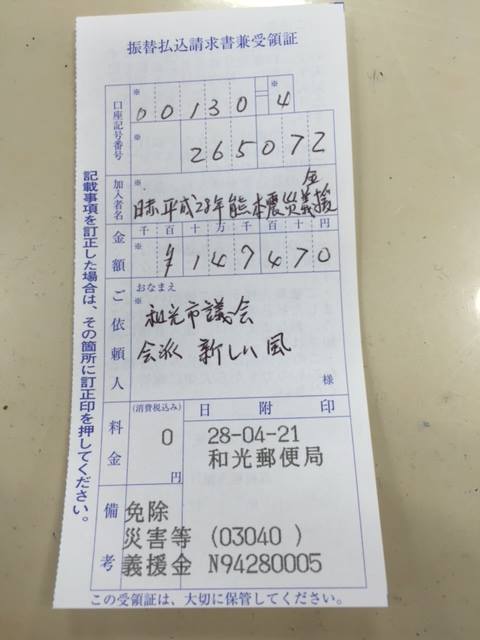 振替払込請求書兼受領証
口座記号番号
※ 00130 ※ 4
※ 265072
加入者名
※ 日赤平成28年熊本震災義援金
金額
千百十万千百十円
※ ¥147470
ご依頼人
おなまえ
※ 和光市議会
会派 新しい風
様
料金
(消費税込み)
0
円
日附印
28-04-21
和光郵便局
備考
免除
災害等 (03040 )
義援金 N94280005
この受領証は、大切に保管してください。
記載事項を訂正した場合は、その箇所に訂正印を押してください。